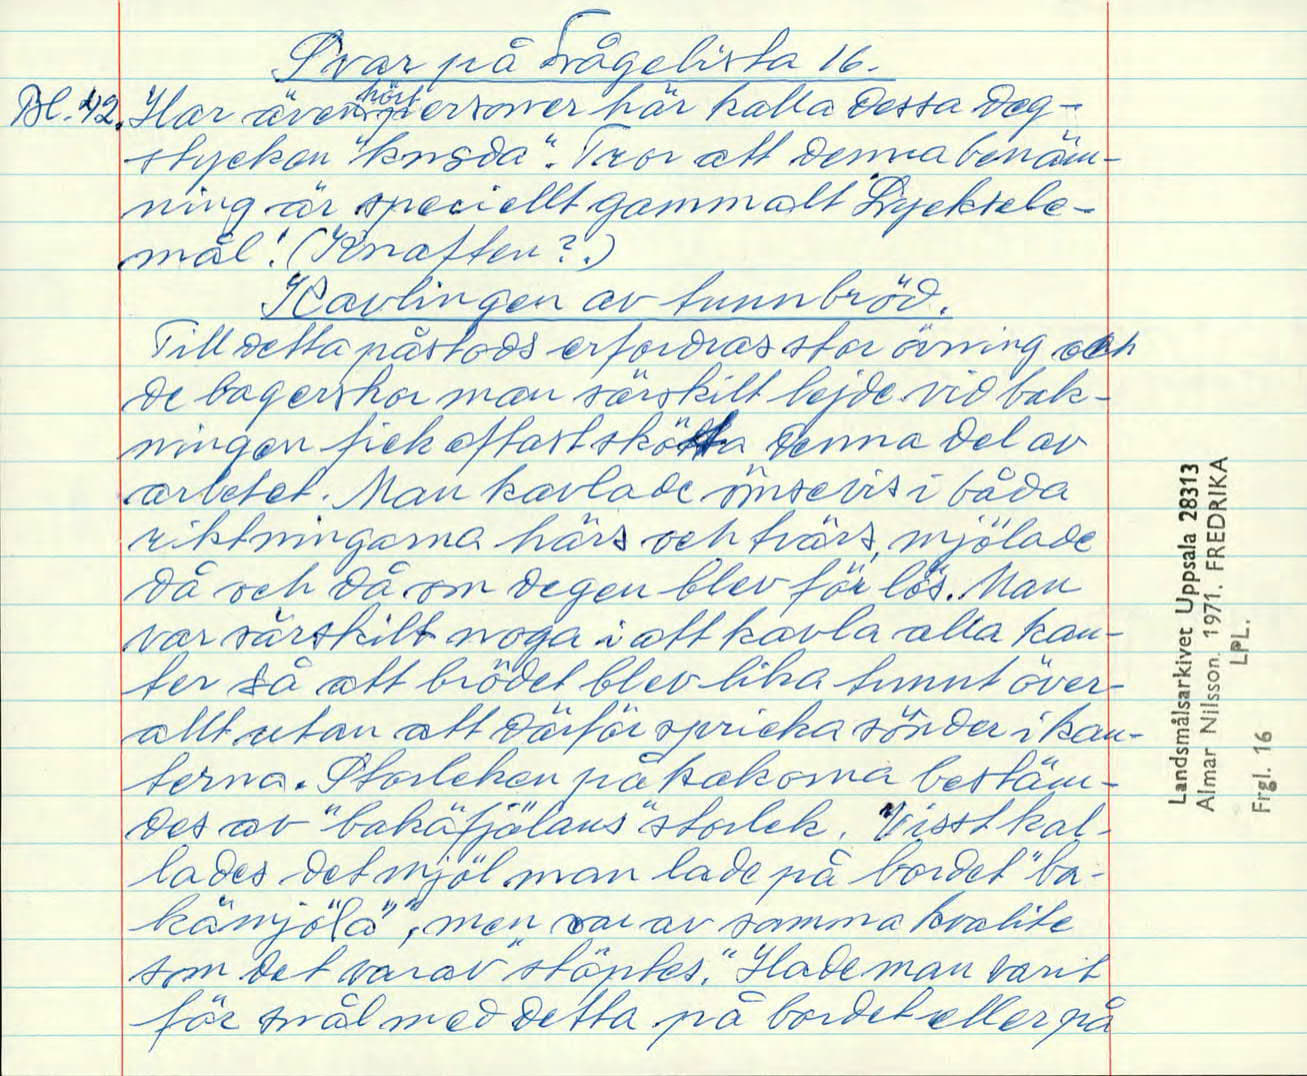 Svar på Frågelista 16.
Bl. 42. Har även hört personer här kalla dessa deg-
stycken "knoda". Tror att denna benäm-
ning är speciellt gammalt Lycksele-
mål! (Knaften?.)
Kavlingen av tunnbröd.
Till detta påstods erfordras stor övning och
de bagerskor man särskilt lejde vid bak-
ningen fick oftast sköta denna del av
arbetet. Man kavlade ömsevis i båda
riktningarna härs och tvärs, mjölade
då och då om degen blev för lös. Man
var särskilt noga i att kavla alla kan-
ter så att brödet blev lika tunnt över-
allt utan att därför spricka sönder i kan-
terna. Storleken på kakorna bestäm-
des av "bakäfjälans" storlek. Visst kal-
lades det mjöl man lade på bordet "ba-
kämjöla", men var av samma kvalite
som det varav "stöptes." Hade man varit
för snål med detta på bordet eller på
Landsmålsarkivet Uppsala 28313
Almar Nilsson. 1971. FREDRIKA
LPL.
Frgl. 16